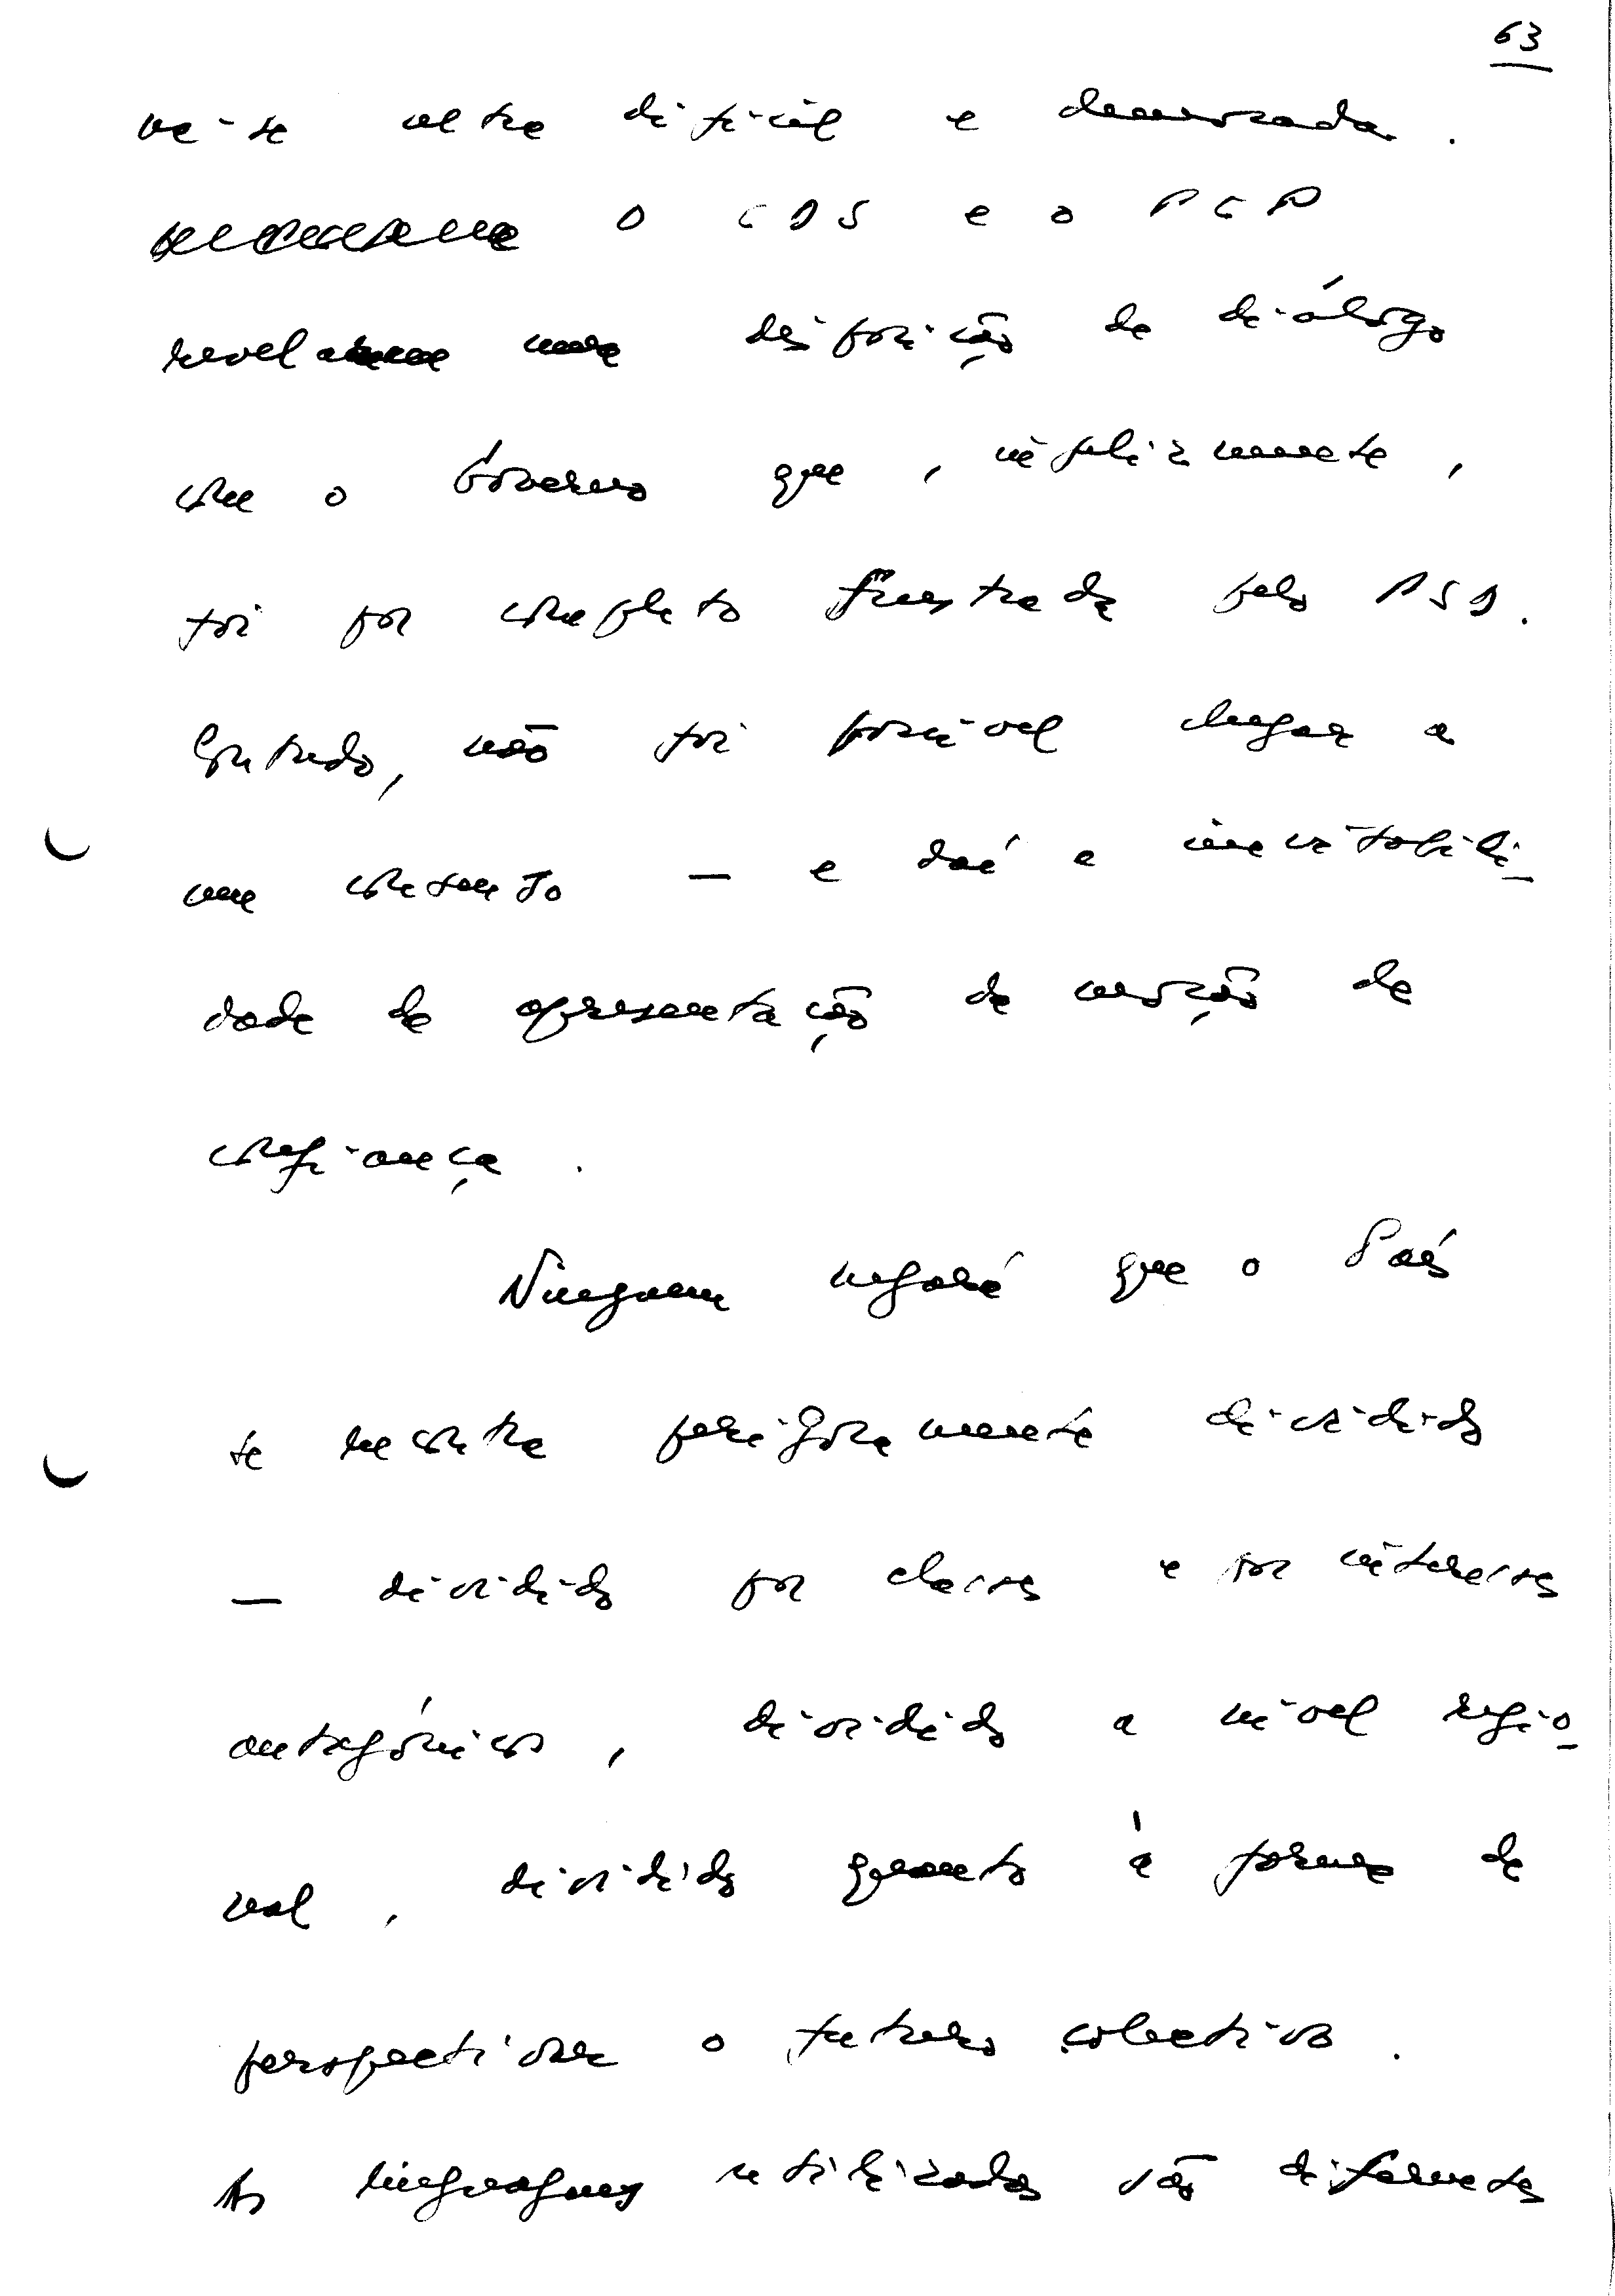 63
va-se ultra difícil e demorada.
O CDS e o PCP
revelaram uma disposição de diálogo
com o Governo que, infelizmente,
foi por completo frustrada pelo PSD.
Contudo, não foi possível chegar a
um consenso — e daí a inevitabili-
dade de apresentação da moção de
confiança.
Ninguem negará que o País
se encontra perigosamente dividido
— dividido por classes e por interesses
antagónicos, dividido a nível regio-
nal, dividido quanto à forma de
perspectivar o futuro colectivo.
As linguagens utilizadas são diferentes